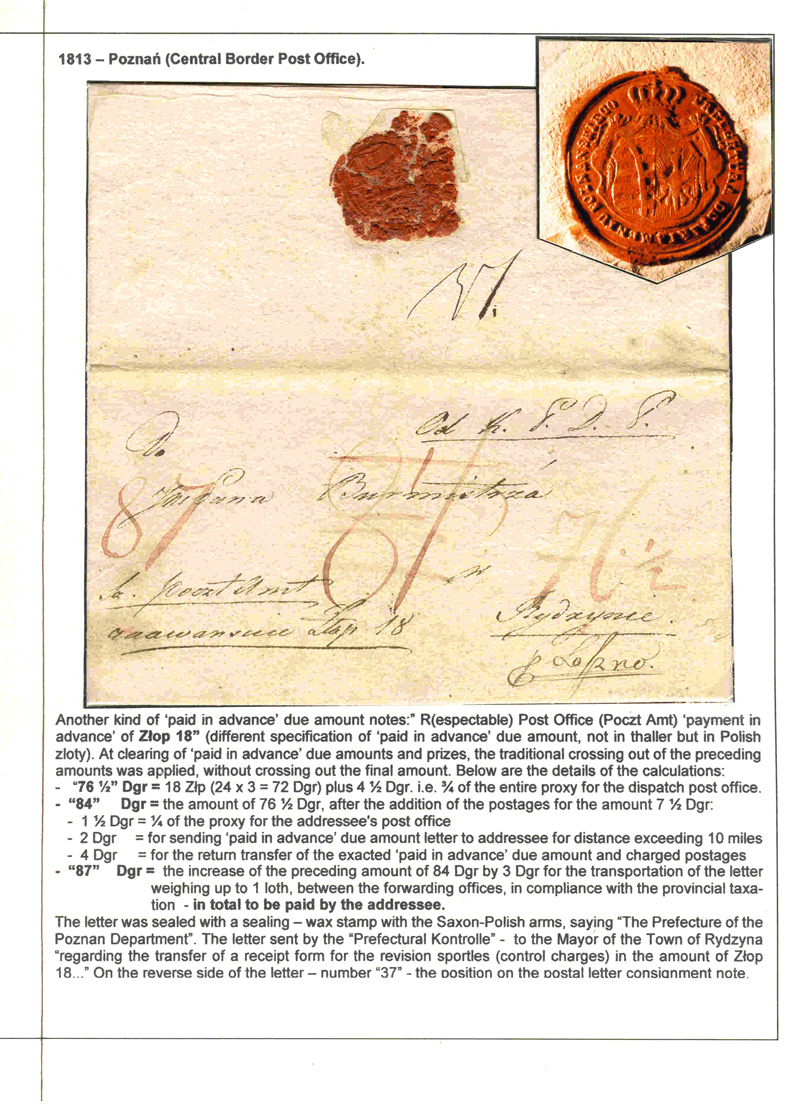 1813 – Poznań (Central Border Post Office).
PREFEKTURA DEPARTAMENTU POZNAŃSKIEGO
37.
Od K. P. D. P.
Do
JW Pana Burmistrza
87 84 76 ½
w
Sz. Poczt Amt
zaawansuie Złop 18
Rydzynie.
p Leszno.
Another kind of ‘paid in advance’ due amount notes:” R(espectable) Post Office (Poczt Amt) ‘payment in
advance’ of Złop 18” (different specification of ‘paid in advance’ due amount, not in thaller but in Polish
zloty). At clearing of ‘paid in advance’ due amounts and prizes, the traditional crossing out of the preceding
amounts was applied, without crossing out the final amount. Below are the details of the calculations:
- “76 ½” Dgr = 18 Złp (24 x 3 = 72 Dgr) plus 4 ½ Dgr. i.e. ¾ of the entire proxy for the dispatch post office.
- “84” Dgr = the amount of 76 ½ Dgr, after the addition of the postages for the amount 7 ½ Dgr:
- 1 ½ Dgr = ¼ of the proxy for the addressee's post office
- 2 Dgr = for sending ‘paid in advance’ due amount letter to addressee for distance exceeding 10 miles
- 4 Dgr = for the return transfer of the exacted ‘paid in advance’ due amount and charged postages
- “87” Dgr = the increase of the preceding amount of 84 Dgr by 3 Dgr for the transportation of the letter
weighing up to 1 loth, between the forwarding offices, in compliance with the provincial taxa-
tion - in total to be paid by the addressee.
The letter was sealed with a sealing – wax stamp with the Saxon-Polish arms, saying “The Prefecture of the
Poznan Department”. The letter sent by the “Prefectural Kontrolle” - to the Mayor of the Town of Rydzyna
“regarding the transfer of a receipt form for the revision sportles (control charges) in the amount of Złop
18...” On the reverse side of the letter – number “37” - the position on the postal letter consignment note.